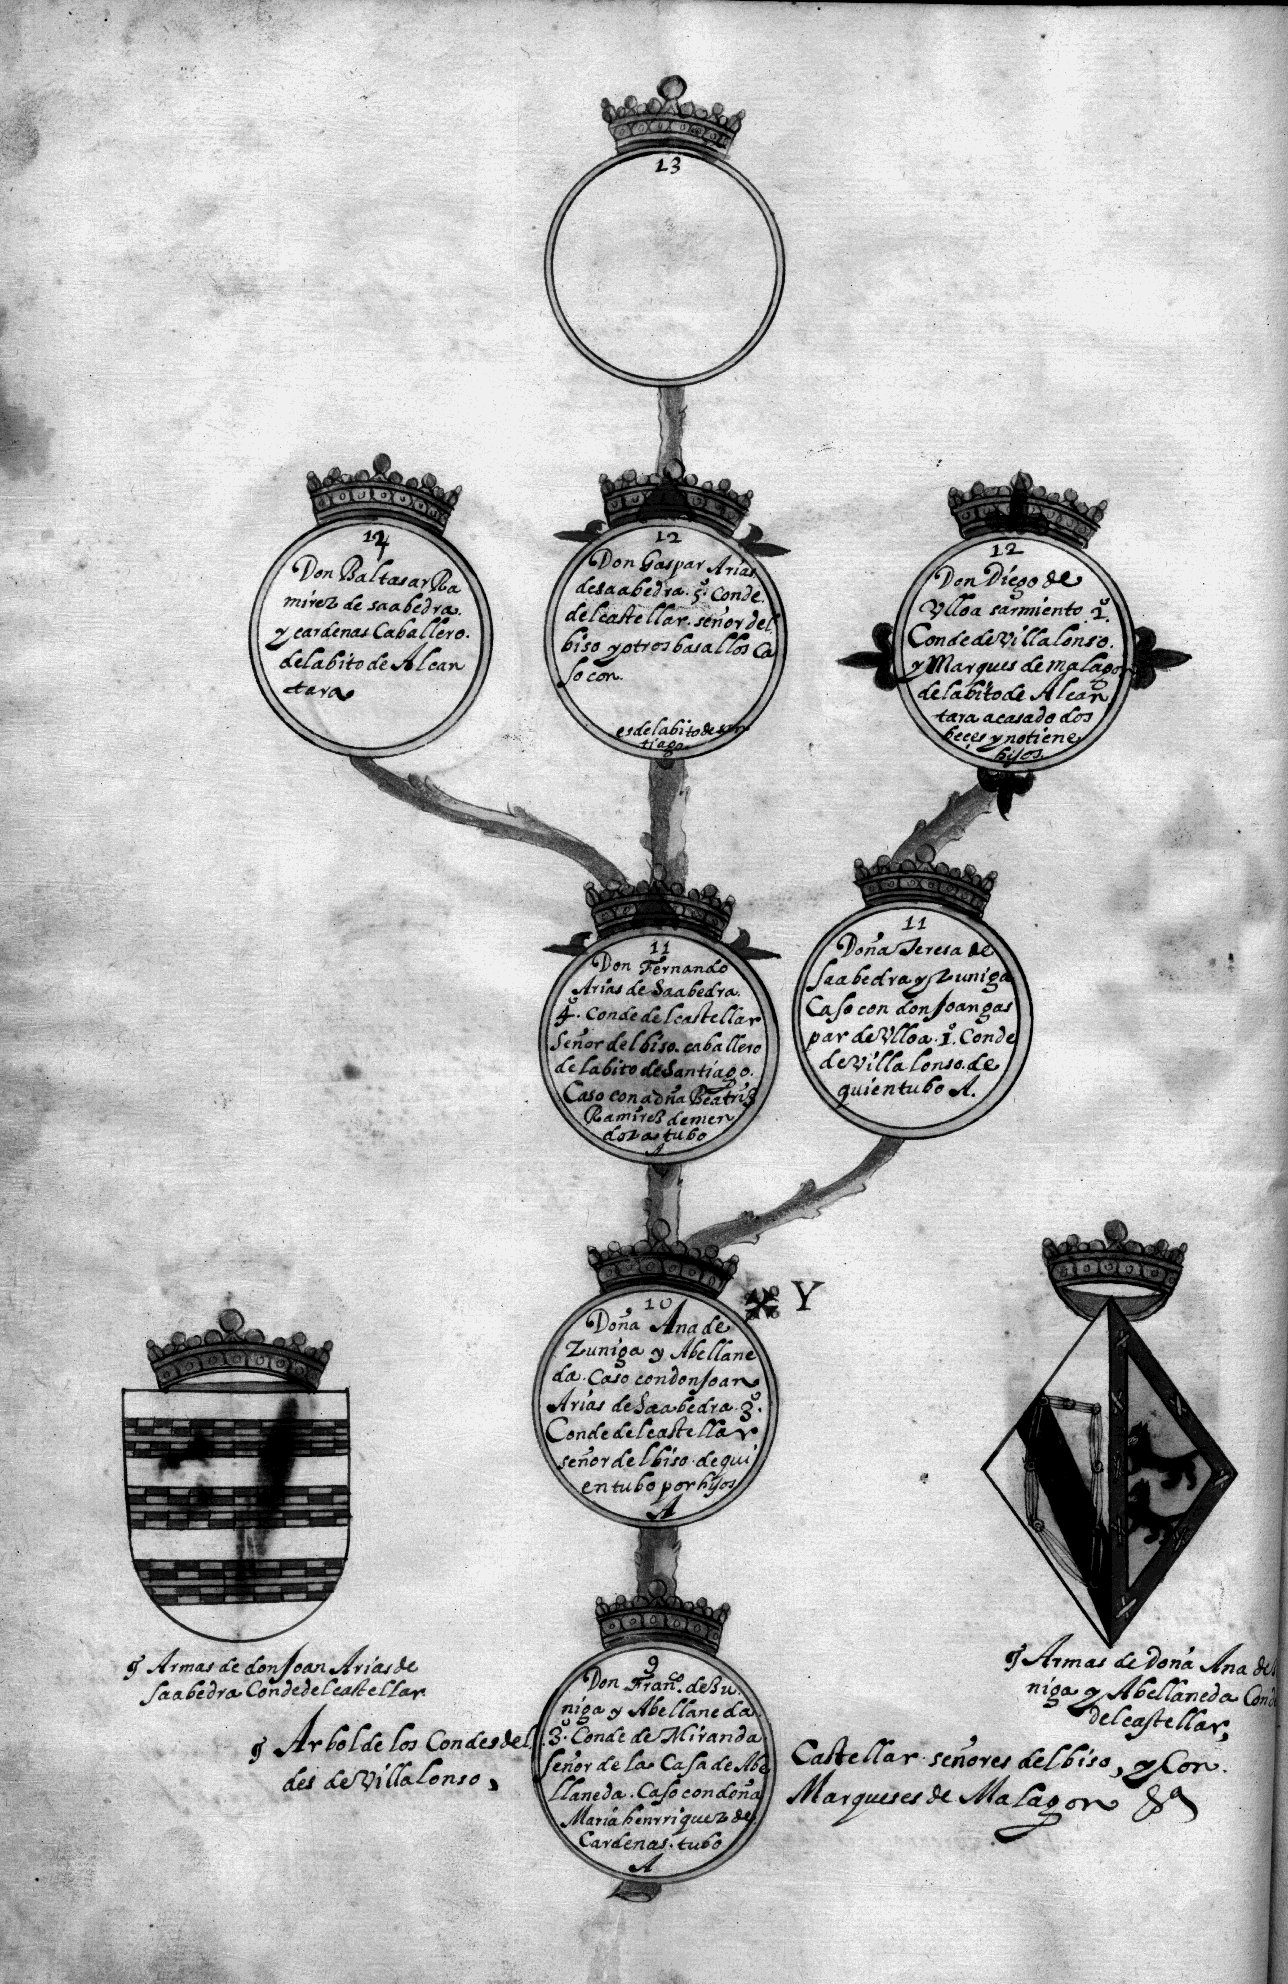 13
12
Don Baltasar Ra
mirez de saabedra.
y cardenas Caballero.
delabito de Alcan
tara
12
Don Gaspar Arias
desaabedra. 5º. Conde.
delcastellar. señor del.
biso y otros basallos Ca
so con.
es delabito de san
tiago.
12
Don Diego de
Vlloa sarmiento. 1º.
Conde de Villalonso.
y Marques de malagon
delabito de Alcan
tara acasado dos
beçes y notiene
hijos.
11
Don Fernando
Arias de Saabedra.
4º. Conde delcastellar
Señor delbiso. caballero
delabito de Santiago.
Caso con adña Beatriz
Ramirez demen
doza stubo
A
11
Doña Teresa de
saabedra y Zuniga
Caso con don Joan gas
par de Vlloa. 1º. Conde
de Villalonso. de
quien tubo A.
10
Doña Ana de
Zuniga y Abellane
da. Caso con don Joan
Arias de Saabedra. 3º.
Conde delcastellar
señor delbiso. de qui
en tubo por hijos
A
Y
9
Don Franco. de Zu.
niga y Abellaneda.
3º. Conde de Miranda
señor de la Casa de Abe
llaneda. Caso con doña
Maria henrriquez de
Cardenas. tubo
A
Armas de don Joan Arias de
saabedra Conde delcastellar
Armas de doña Ana de
niga y Abellaneda Cond
delcastellar,
Arbol de los Condes del. Castellar. señores delbiso, y Con.
des de Villalonso, Marqueses de Malagon &a